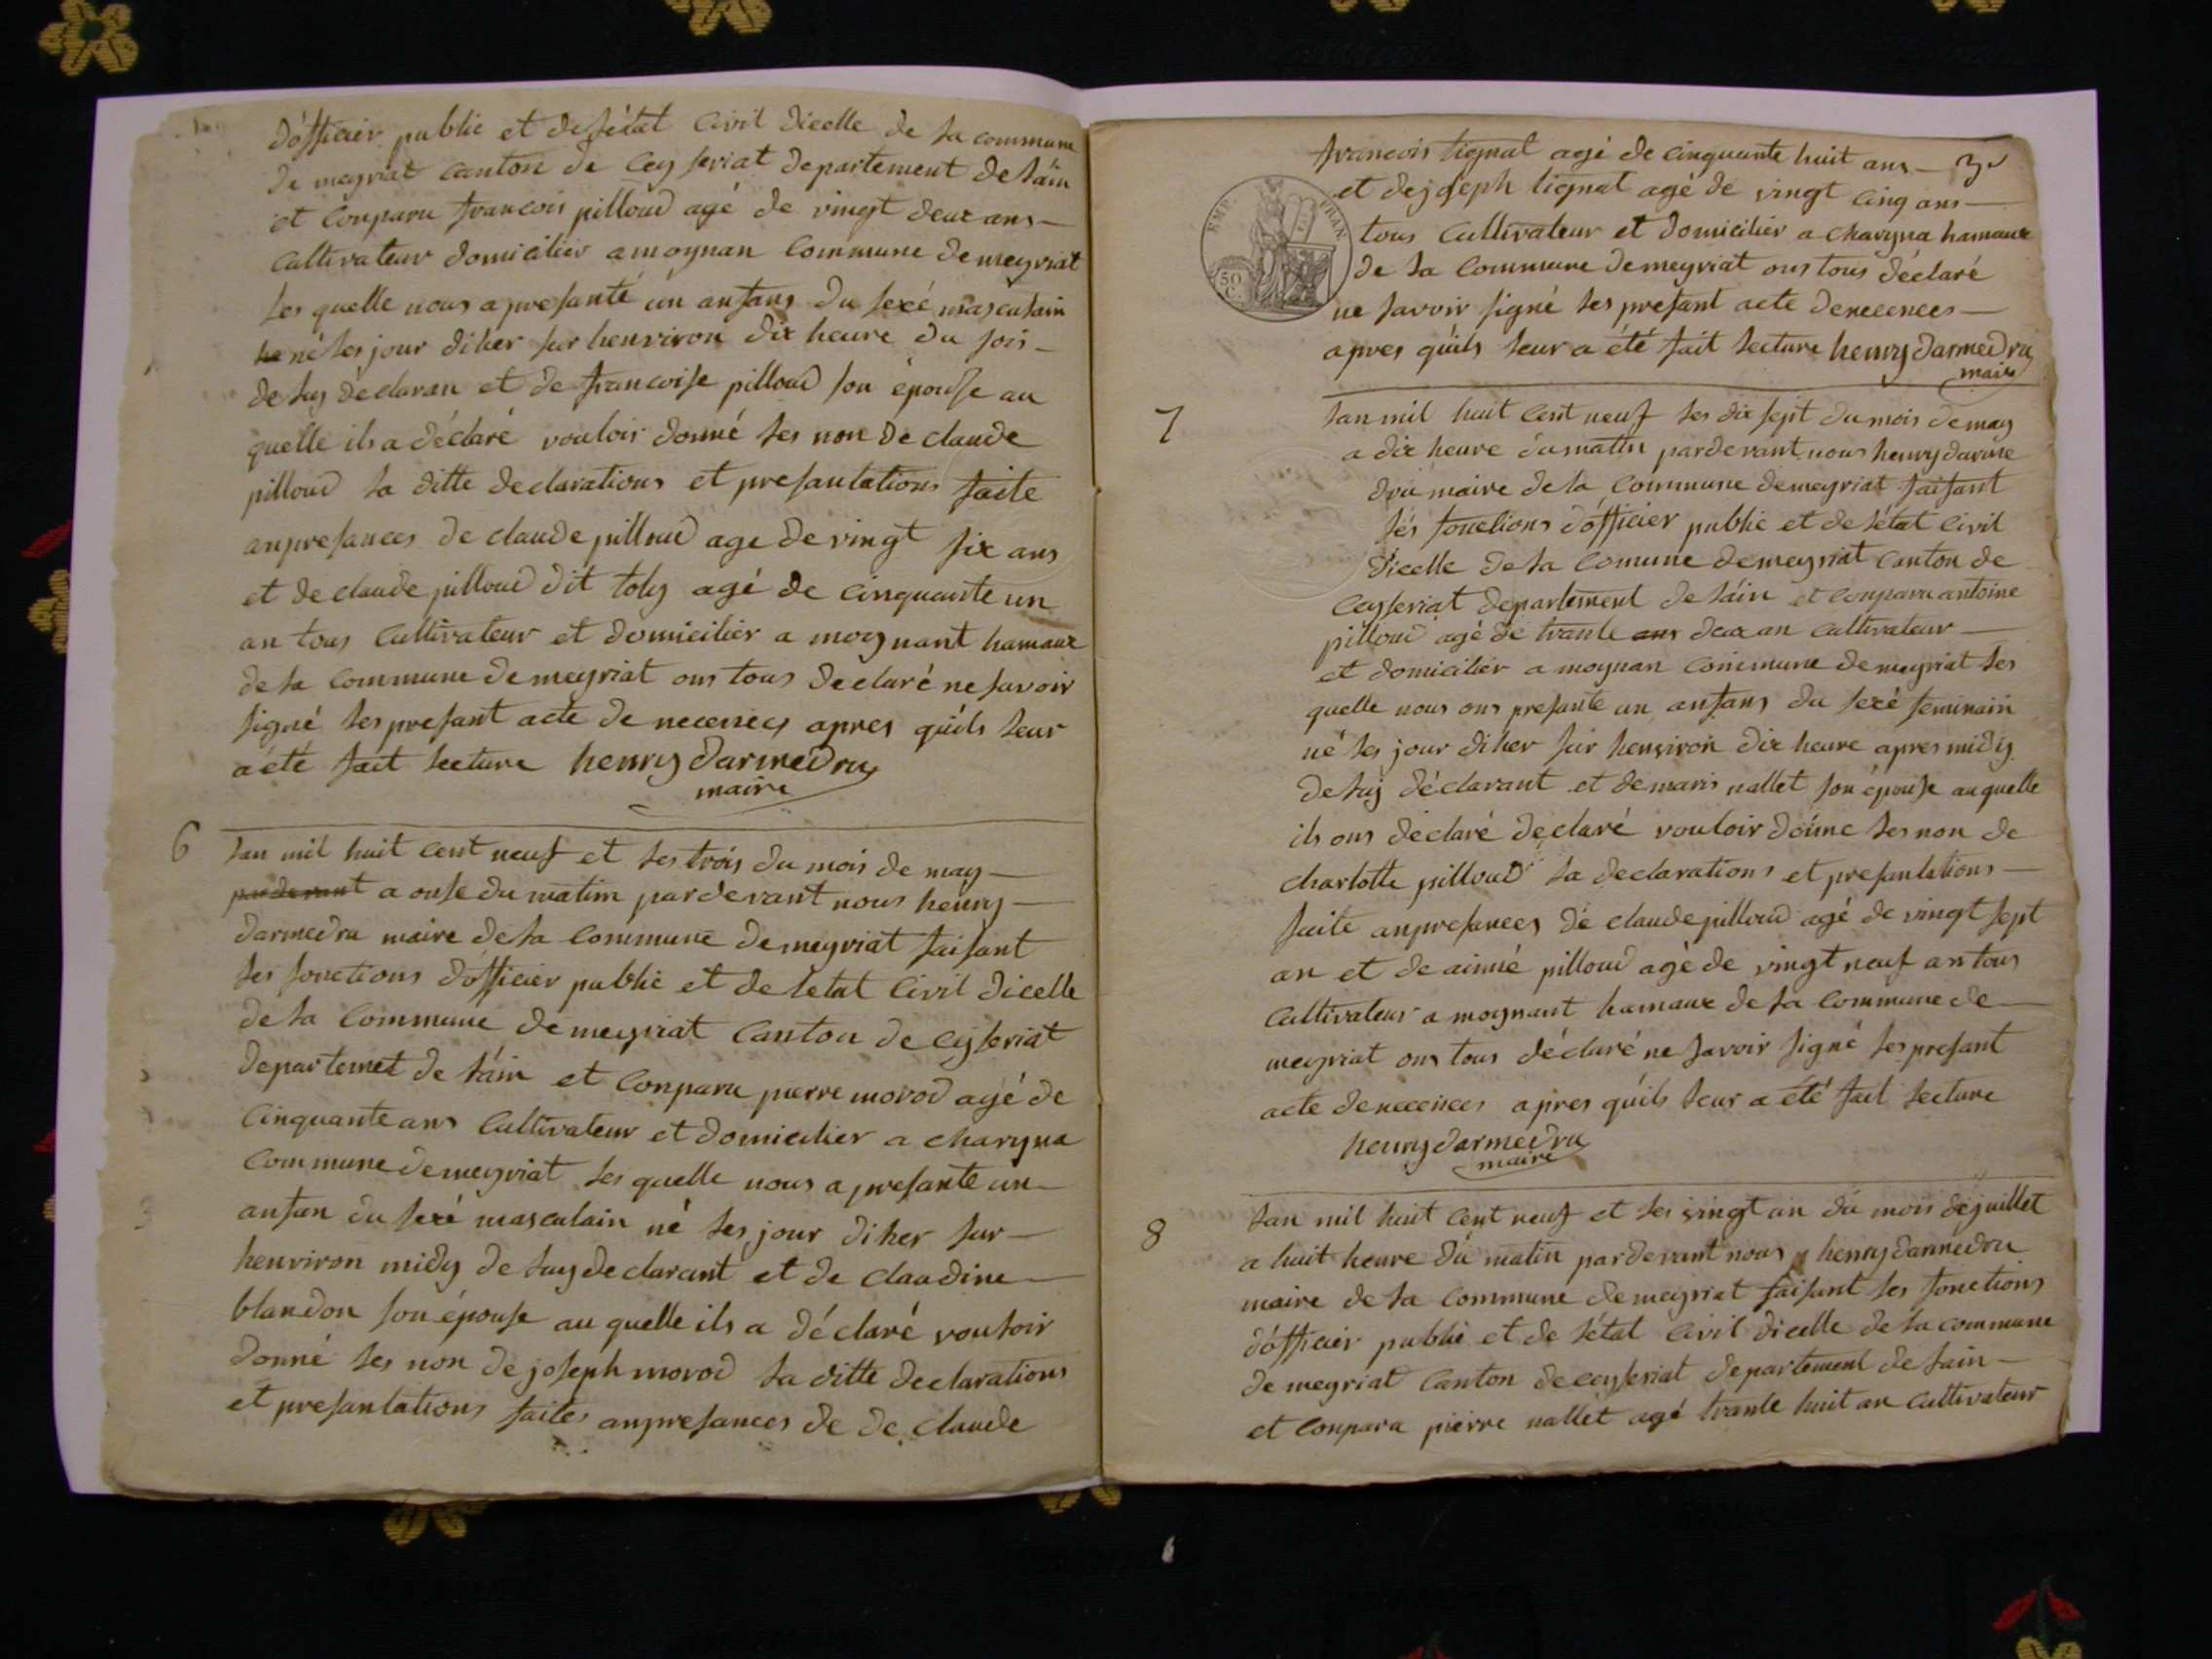 d'officier public et de l'état civil dicelle de la commune
de meyriat canton de Ceyseriat departement de l'ain
et conparu francois pilloud agé de vingt deux ans —
cultivateur domicilier a moynan commune de meyriat
les quelle nous a presanté un anfans du sexé masculain
né les jour diher sur henviron dix heure du soir —
de luy declaran et de francoise pilloud son épouse au
quelle ils a déclaré vouloir donné les non de claude
pilloud la ditte declarations et presantations faite
anpresances de claude pilloud age de vingt six ans
et de claude pilloud dit toly agé de cinquante un
an tous cultivateur et domicilier a moynant hamaux
de la commune de meyriat ons tous declaré ne savoir
signé les presant acte de necences apres qúils leur
a été fait lecture henry darmedru
maire
6 lan mil huit cent neuf et les trois du mois de may —
parderant a onse du matim pardevant nous henry —
darmedru maire de la commune de meyriat faisant
les fonctions d'officier public et de letat civil dicelle
de la commune de meyriat canton de ceyseriat
departemet de l'áin et conparu pierre morod agé de
cinquante ans cultivateur et domicilier a charyna
commune de meyriat les quelle nous a presante un —
anfan du sexé masculain né les jour diher sur —
henviron midy de luy declarant et de claudine —
blandon son épouse au quelle ils a déclaré vouloir
donné les non de joseph morod la ditte declarations
et presantations faites anpresances de de claude
francois lignat agé de cinquante huit ans — 3e
et de joseph lignat agé de vingt cinq ans —
EMP. FRAN.
50 C.
tous cultivateur et domicilier a charyna hamaux
de la commune de meyriat ons tous déclaré
ne savoir signé les presant acte de necences —
apres qúils leur a été fait lecture henry darmedru
maire
7 lan mil huit cent neuf les dix sept du mois de may
a dix heure du matin pardevant nous henry darme
dru maire de la commune de meyriat faisant
lés fonctions d'officier public et de l'état civil
dicelle de la comune de meyriat canton de
ceyseriat departement de l'áin et conparu antoine
pilloud agé de trante ans deux an cultivateur —
et domicilier a moynan commune de meyriat les
quelle nous ons presante un anfans du sexé feminain
né les jour diher sur henviron dix heure apres midy
de luy déclarant et de marie nallet son épouse au quelle
ils ons déclaré déclaré vouloir donne les non de
charlotte pilloud la declarations et presantations —
faite anpresances de claude pilloud agé de vingt sept
an et de aimé pilloud agé de vingt neuf an tous
cultivateur a moynant hamaux de la commune de —
meyriat ons tous déclaré ne savoir signé les presant
acte de necences apres qúils leur a été fait lecture
henry darmedru
maire
8 lan mil huit cent neuf et les vingt un du mois de juillet
a huit heure du matin pardevant nous henry darmedru
maire de la commune de meyriat faisant les fonctions
d'officier public et de l'état civil dicelle de la commune
de meyriat canton de ceyseriat departement de l'ain —
et conpara pierre nallet agé trante huit an cultivateur